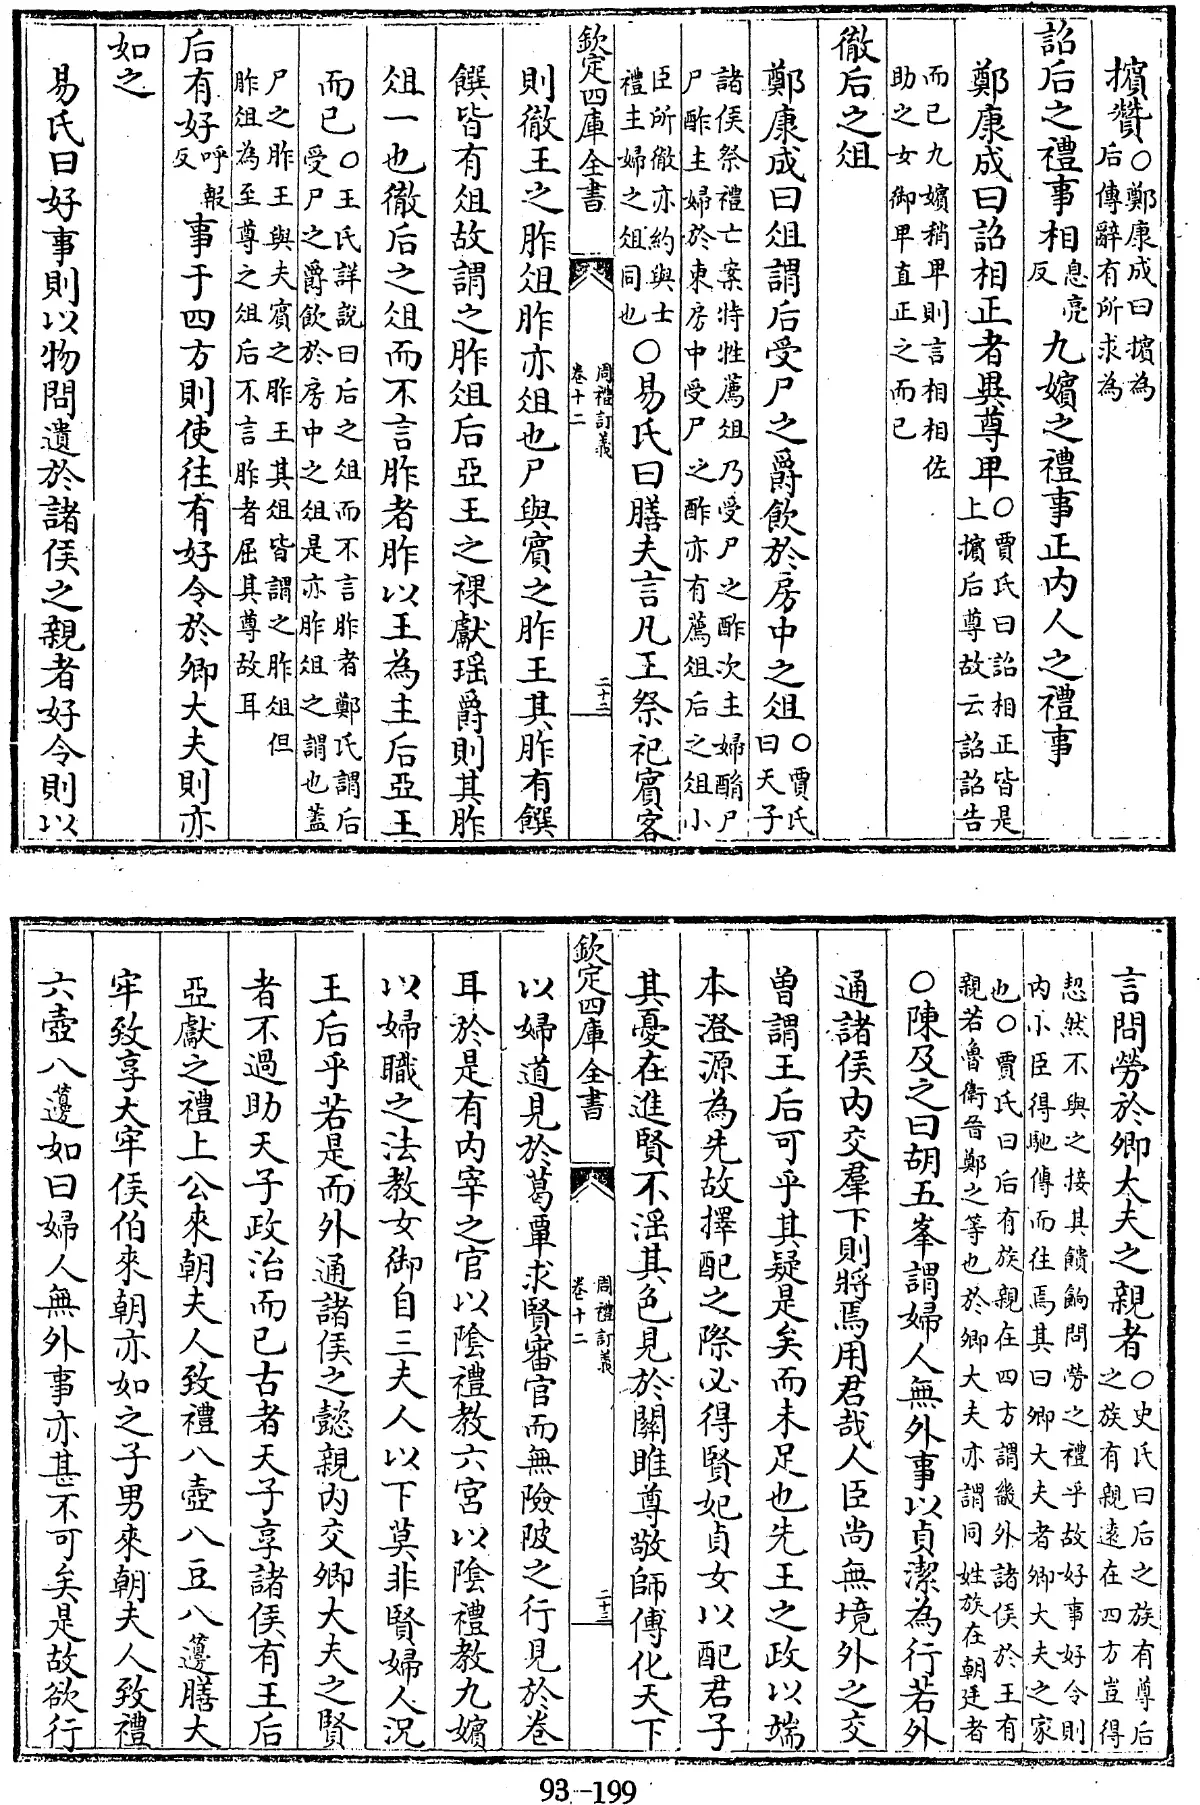 擯贊○鄭康成曰擯為
后傳辭有所求為
詔后之禮事相息亮
反九嬪之禮事正内人之禮事
鄭康成曰詔相正者異尊卑○賈氏曰詔相正皆是
上擯后尊故云詔詔告
而已九嬪稍卑則言相相佐
助之女御卑直正之而已
徹后之俎
鄭康成曰俎謂后受尸之爵飲於房中之俎○賈氏
曰天子
諸侯祭禮亡案特牲薦俎乃受尸之酢次主婦酳尸
尸酢主婦於東房中受尸之酢亦有薦俎后之俎小
臣所徹亦約與士
禮主婦之俎同也○易氏曰膳夫言凡王祭祀賓客
欽定四庫全書
周禮訂義
卷十二
二十二
則徹王之胙俎胙亦俎也尸與賓之胙王其胙有饌
饌皆有俎故謂之胙俎后亞王之祼獻瑶爵則其胙
俎一也徹后之俎而不言胙者胙以王為主后亞王
而已○王氏詳說曰后之俎而不言胙者鄭氏謂后
受尸之爵飲於房中之俎是亦胙俎之謂也蓋
尸之胙王與夫賓之胙王其俎皆謂之胙俎但
胙俎為至尊之俎后不言胙者屈其尊故耳
后有好呼報
反事于四方則使往有好令於卿大夫則亦
如之
易氏曰好事則以物問遺於諸侯之親者好令則以
言問勞於卿大夫之親者○史氏曰后之族有尊后
之族有親遠在四方豈得
恝然不與之接其饋餉問勞之禮乎故好事好令則
内小臣得馳傳而往焉其曰卿大夫者卿大夫之家
也○賈氏曰后有族親在四方謂畿外諸侯於王有
親若魯衛晉鄭之等也於卿大夫亦謂同姓族在朝廷者
○陳及之曰胡五峯謂婦人無外事以貞潔為行若外
通諸侯内交羣下則將焉用君哉人臣尚無境外之交
曾謂王后可乎其疑是矣而未足也先王之政以端
本澄源為先故擇配之際必得賢妃貞女以配君子
其憂在進賢不淫其色見於關雎尊敬師傅化天下
欽定四庫全書
周禮訂義
卷十二
二十三
以婦道見於葛覃求賢審官而無險陂之行見於卷
耳於是有内宰之官以隂禮教六宮以隂禮教九嬪
以婦職之法教女御自三夫人以下莫非賢婦人況
王后乎若是而外通諸侯之懿親内交卿大夫之賢
者不過助天子政治而已古者天子享諸侯有王后
亞獻之禮上公來朝夫人致禮八壺八豆八籩膳大
牢致享大牢侯伯來朝亦如之子男來朝夫人致禮
六壺八籩如曰婦人無外事亦甚不可矣是故欲行
93-199